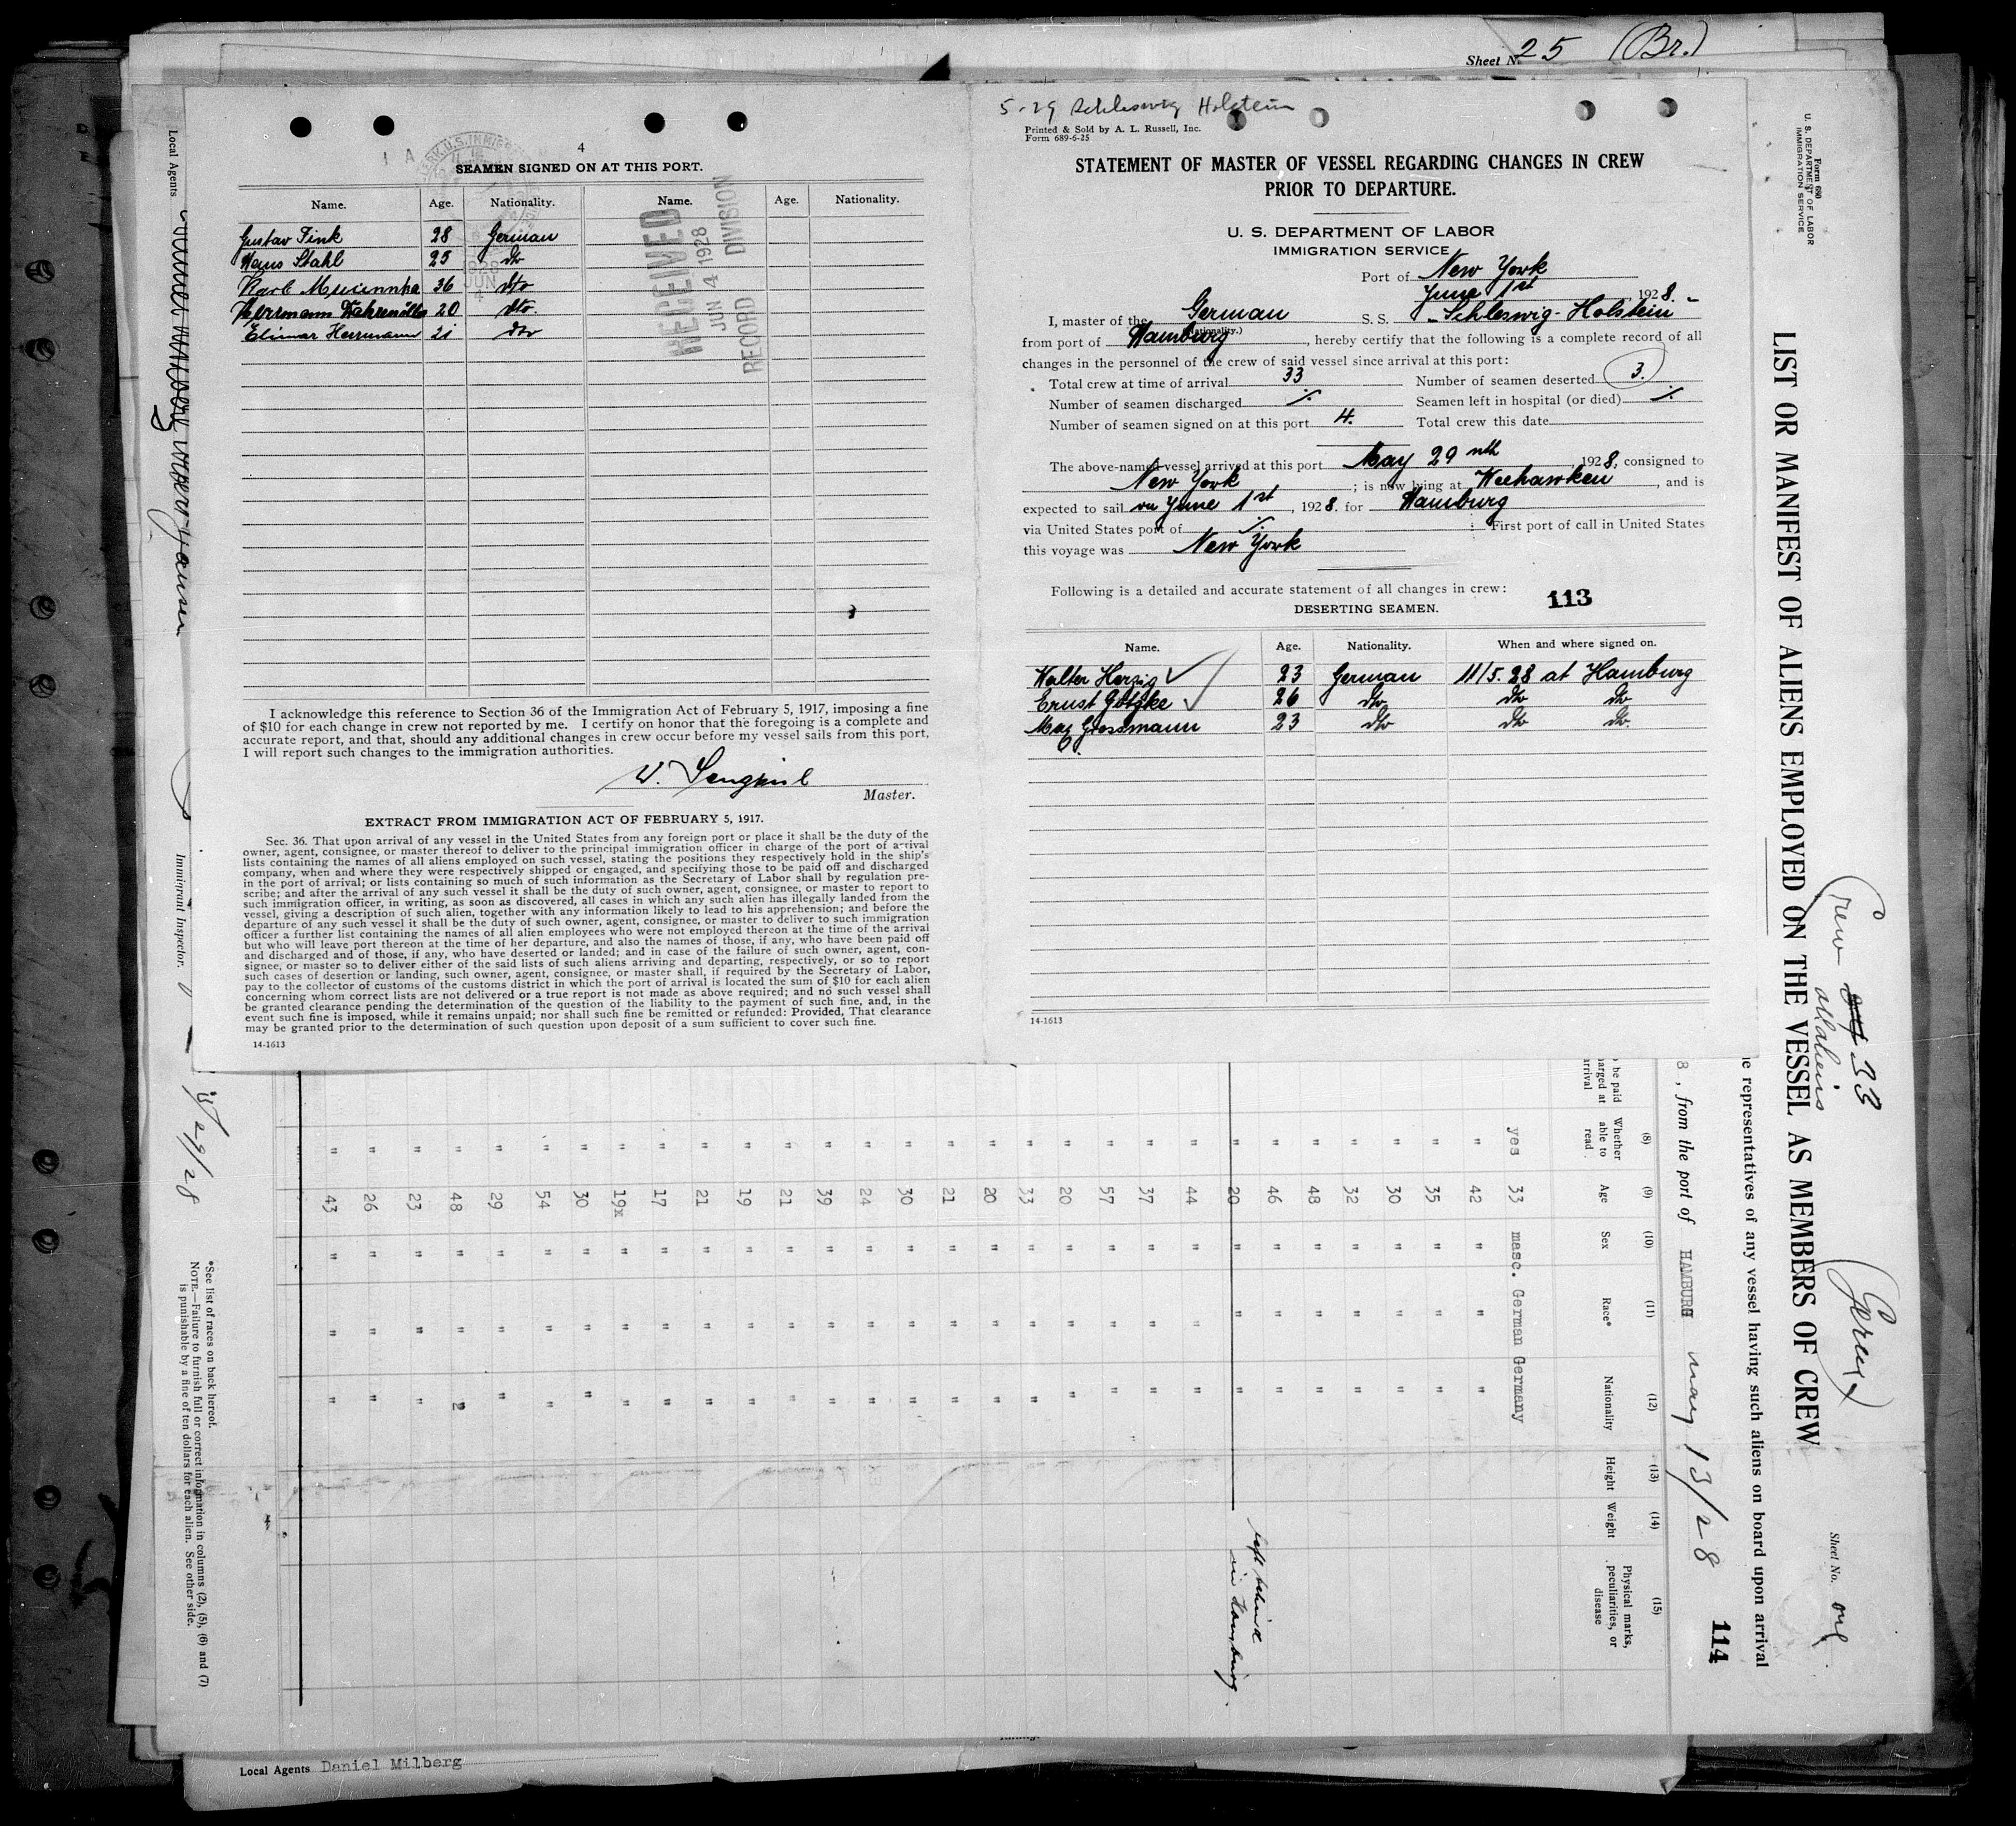 Sheet No. 25 (Br.)
4
SEAMEN SIGNED ON AT THIS PORT.
Name. Age. Nationality. Name. Age. Nationality.
Gustav Fink 28 German
Hans Stahl 25 dto
Karl 36 dto
Herrmann 20 dto.
Elimar Herrmann 21 dto
RECEIVED
JUN 4 1928
RECORD DIVISION
I acknowledge this reference to Section 36 of the Immigration Act of February 5, 1917, imposing a fine
of $10 for each change in crew not reported by me. I certify on honor that the foregoing is a complete and
accurate report, and that, should any additional changes in crew occur before my vessel sails from this port,
I will report such changes to the immigration authorities.
W.
Master.
EXTRACT FROM IMMIGRATION ACT OF FEBRUARY 5, 1917.
Sec. 36. That upon arrival of any vessel in the United States from any foreign port or place it shall be the duty of the
owner, agent, consignee, or master thereof to deliver to the principal immigration officer in charge of the port of arrival
lists containing the names of all aliens employed on such vessel, stating the positions they respectively hold in the ship's
company, when and where they were respectively shipped or engaged, and specifying those to be paid off and discharged
in the port of arrival; or lists containing so much of such information as the Secretary of Labor shall by regulation pre-
scribe; and after the arrival of any such vessel it shall be the duty of such owner, agent, consignee, or master to report to
such immigration officer, in writing, as soon as discovered, all cases in which any such alien has illegally landed from the
vessel, giving a description of such alien, together with any information likely to lead to his apprehension; and before the
departure of any such vessel it shall be the duty of such owner, agent, consignee, or master to deliver to such immigration
officer a further list containing the names of all alien employees who were not employed thereon at the time of the arrival
but who will leave port thereon at the time of her departure, and also the names of those, if any, who have been paid off
and discharged and of those, if any, who have deserted or landed; and in case of the failure of such owner, agent, con-
signee, or master so to deliver either of the said lists of such aliens arriving and departing, respectively, or so to report
such cases of desertion or landing, such owner, agent, consignee, or master shall, if required by the Secretary of Labor,
pay to the collector of customs of the customs district in which the port of arrival is located the sum of $10 for each alien
concerning whom correct lists are not delivered or a true report is not made as above required; and no such vessel shall
be granted clearance pending the determination of the question of the liability to the payment of such fine, and, in the
event such fine is imposed, while it remains unpaid; nor shall such fine be remitted or refunded: Provided, That clearance
may be granted prior to the determination of such question upon deposit of a sum sufficient to cover such fine.
14-1613
5-29 Schleswig Holstein
Printed & Sold by A. L. Russell, Inc.
Form 689-6-25
STATEMENT OF MASTER OF VESSEL REGARDING CHANGES IN CREW
PRIOR TO DEPARTURE.
U. S. DEPARTMENT OF LABOR
IMMIGRATION SERVICE
Port of New York
June 1st, 1928.
I, master of the German S. S. "Schleswig-Holstein"
(Nationality.)
from port of Hamburg, hereby certify that the following is a complete record of all
changes in the personnel of the crew of said vessel since arrival at this port:
Total crew at time of arrival 33 Number of seamen deserted 3.
Number of seamen discharged ./. Seamen left in hospital (or died) ./.
Number of seamen signed on at this port 4. Total crew this date
The above-named vessel arrived at this port May 29 nth, 1928, consigned to
New York; is now lying at Weehawken, and is
expected to sail on June 1st, 1928. for Hamburg
via United States port of ./. : First port of call in United States
this voyage was New York
Following is a detailed and accurate statement of all changes in crew:
113
DESERTING SEAMEN.
Name. Age. Nationality. When and where signed on.
Walter Herzig 23 German 11/5.28 at Hamburg
Ernst Götzke 26 dto dto dto
Max Grossmann 23 dto dto dto.
14-1613
Form 680
U. S. DEPARTMENT OF LABOR
IMMIGRATION SERVICE
LIST OR MANIFEST OF ALIENS EMPLOYED ON THE VESSEL AS MEMBERS OF CREW
Crew 33
all aliens
(Germ)
Sheet No. one
he representatives of any vessel having such aliens on board upon arrival
8, from the port of HAMBURG may 13/28
114
be paid
arged at
arrival
(8) Whether able to read
(9) Age
(10) Sex
(11) Race*
(12) Nationality
(13) Height
(14) Weight
(15) Physical marks, peculiarities, or disease
yes 33 masc. German Germany
" 42 " " "
" 35 " " "
" 30 " " "
" 32 " " "
" 48 " " "
" 46 " " "
" 20 " " " left behind in Hamburg.
" 44 " " "
" 37 " " "
" 57 " " "
" 20 " " "
" 33 " " "
" 20 " " "
" 21 " " "
" 30 " " "
" 24 " " "
" 39 " " "
" 21 " " "
" 19 " " "
" 21 " " "
" 17 " " "
" 19x " " "
" 30 " " "
" 54 " " "
" 29 " " "
" 48 " " "
" 23 " " "
" 26 " " "
" 43 " " "
*See list of races on back hereof.
NOTE.—Failure to furnish full or correct information in columns (2), (5), (6) and (7)
is punishable by a fine of ten dollars for each alien. See other side.
Local Agents
Immigrant Inspector.
29/28
Local Agents Daniel Milberg